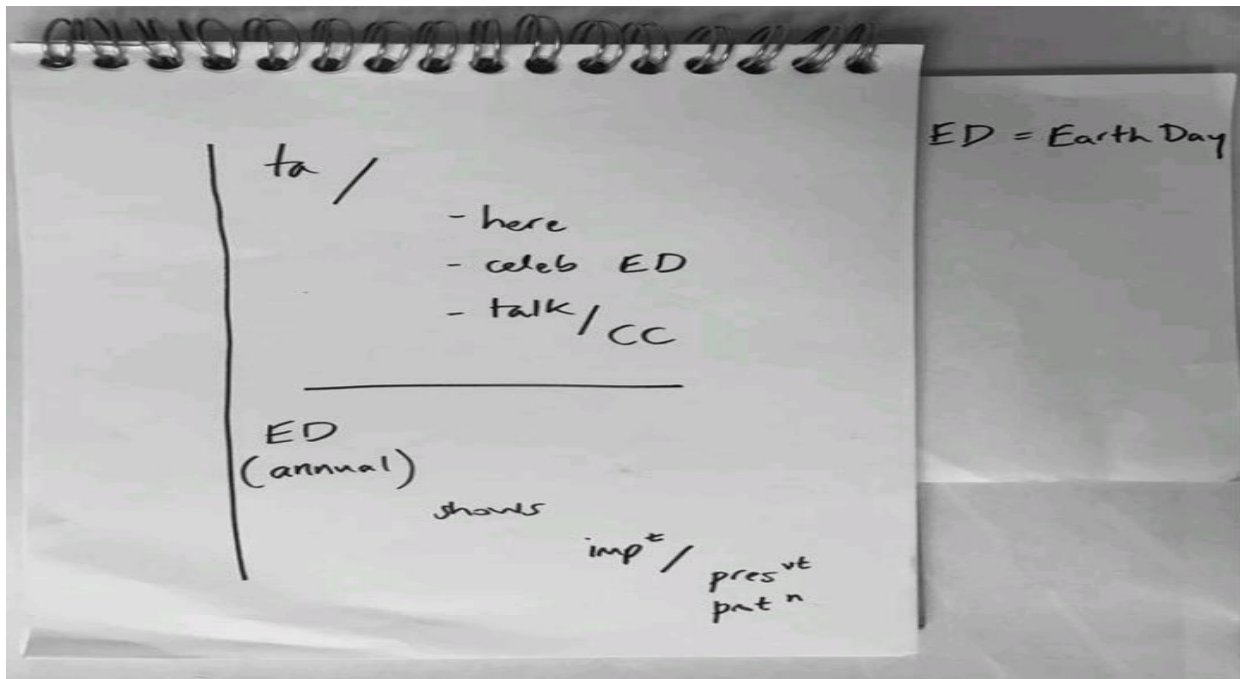 ta /
- here
- celeb ED
- talk / CC
ED
(annual)
shows
impᵗ / presᵛᵗ
pntⁿ
ED = Earth Day